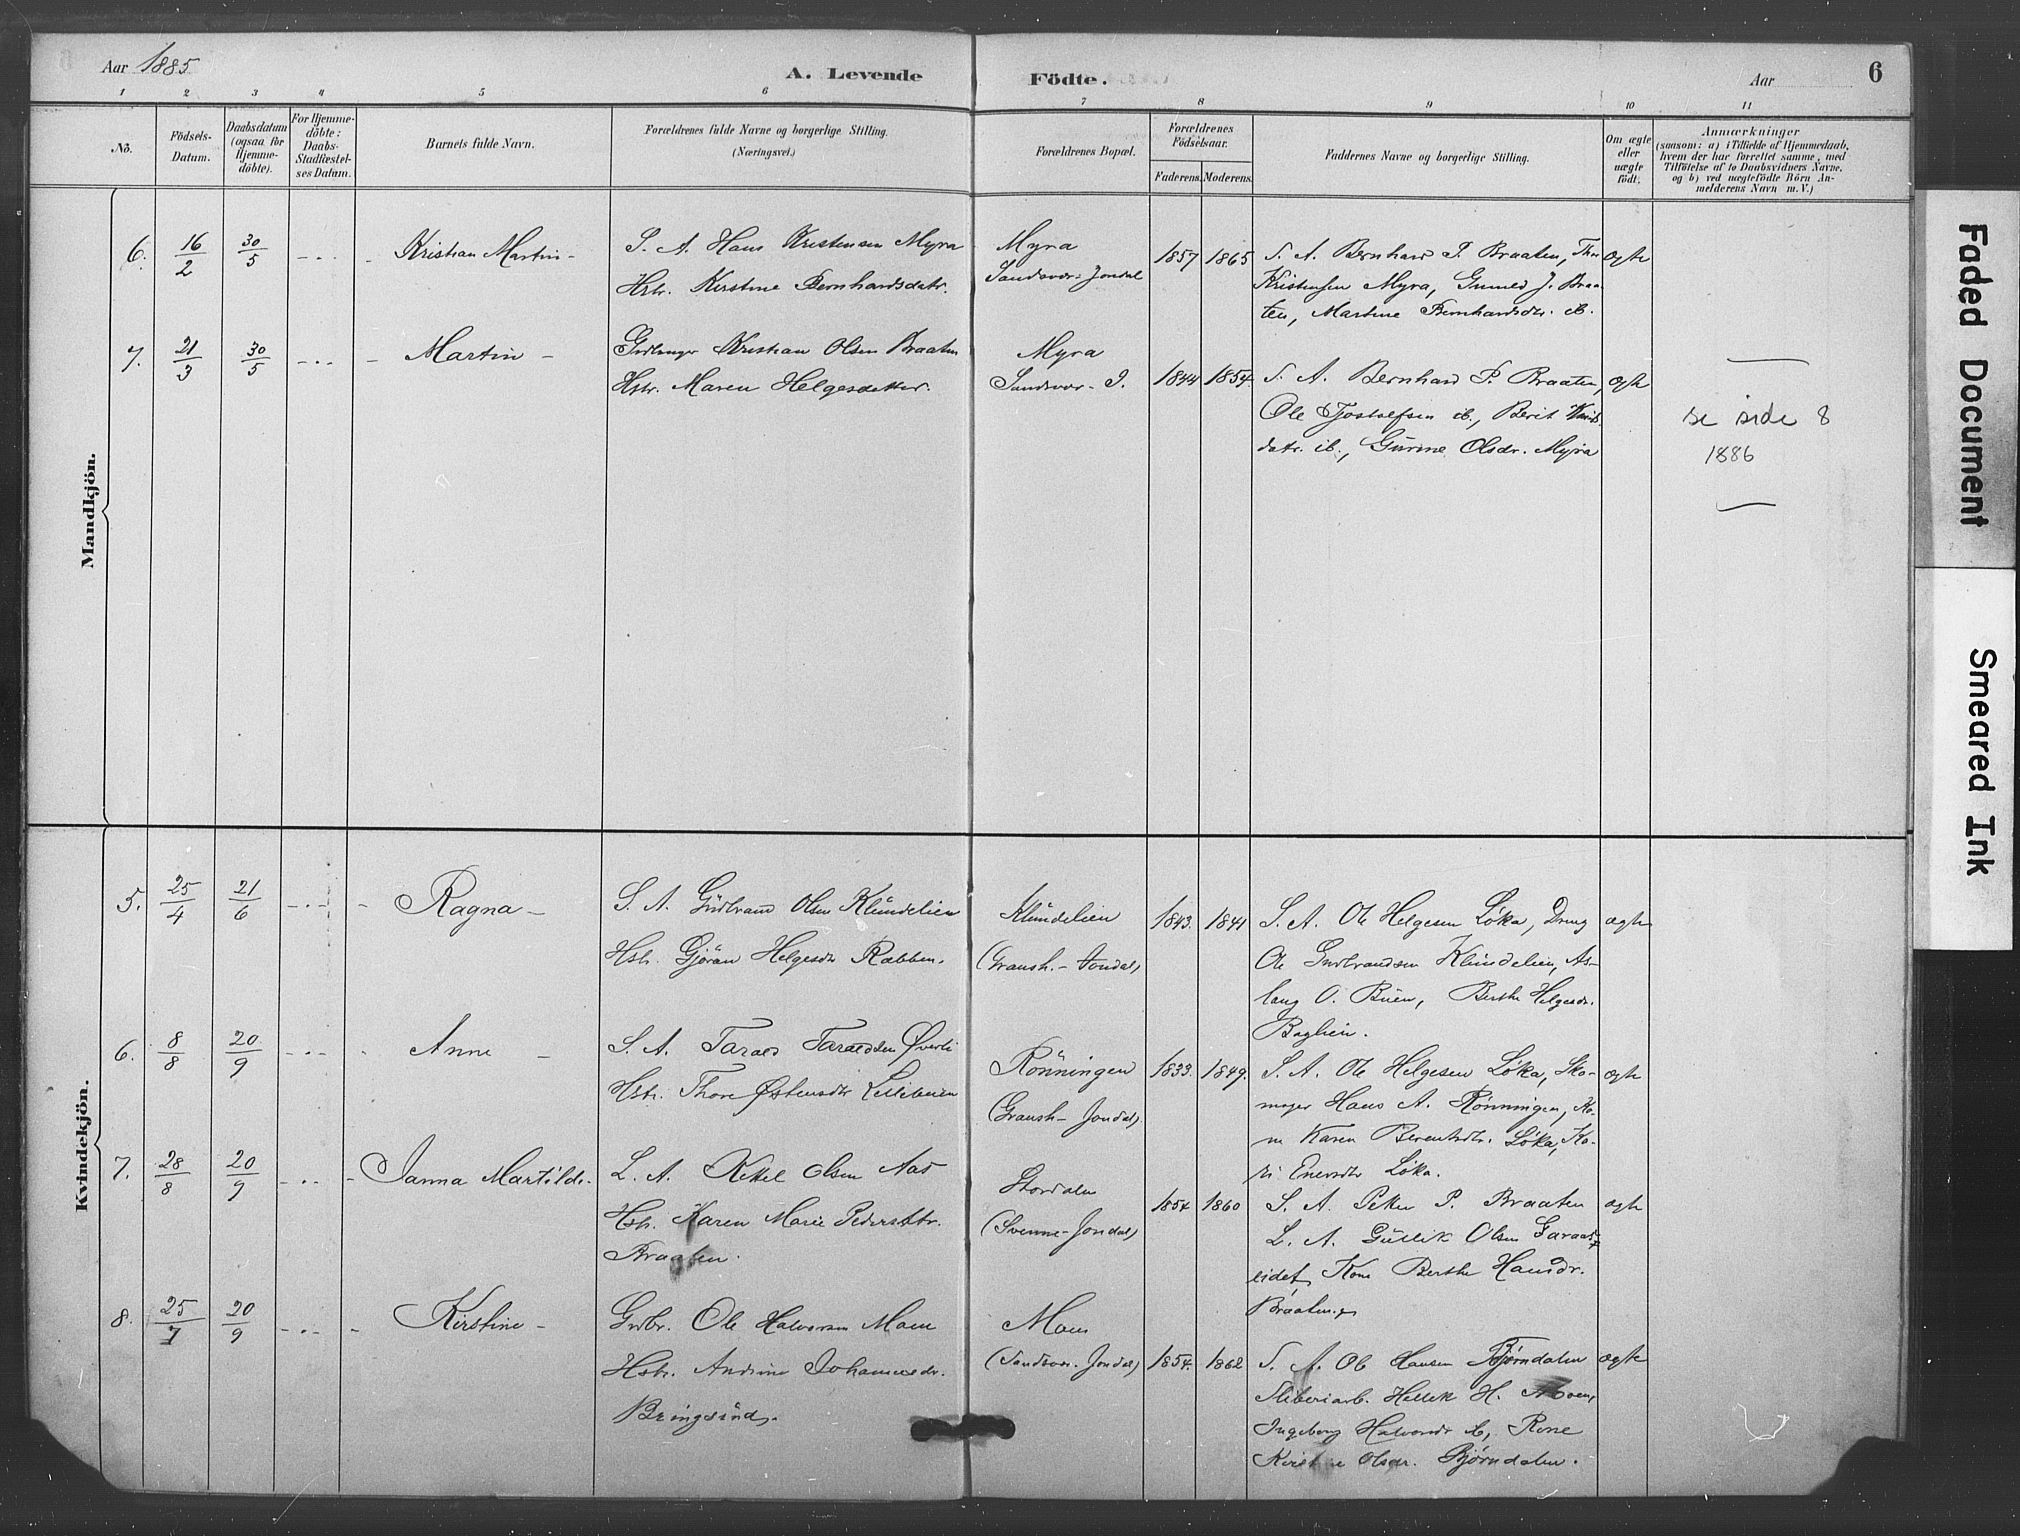 Aar 1885
A. Levende
Födte.
Aar
6
1 2 3 4 5 6 7 8 9 10 11
No.
Födsels-
Datum.
Daabsdatum
(ogsaa for
Hjemme-
döbte).
For Hjemme-
döbte:
Daabs-
Stadfæstel-
ses Datum.
Barnets fulde Navn.
Forældrenes fulde Navne og borgerlige Stilling.
(Næringsvei.)
Forældrenes Bopæl.
Forældrenes
Födselsaar.
Faderens. Moderens.
Faddernes Navne og borgerlige Stilling.
Om ægte
eller
uægte
födt.
Anmærkninger
(saasom: a) i Tilfælde af Hjemmedaab,
hvem der har forrettet samme, med
Tilföielse af to Daabsvidners Navne,
og b) ved uægtefödte Börn An-
melderens Navn m. V.)
Mandkjön.
6. 16/2 30/5 Kristian Martin
S. A. Hans Kristensen Myra
Hstr. Kirstine Bernhardsdatr.
Myra
Sandsvær-Jondal
1857 1865
S. A. Bernhard P. Braaten,
Kristensen Myra, J. Braa-
ten, Martine Bernhardsdr. ib.
ægte
7. 21/3 30/5 Martin
Kristian Olsen Braaten
Hstr. Maren Helgesdatter.
Myra
Sandsvær-J.
1844 1854
S. A. Bernhard P. Braaten,
Ole ib., Berit
datr. ib., Gurine Olsdr. Myra
ægte
se side 8
1886
Kvindekjön.
5. 25/4 21/6 Ragna
S. A. Gudbrand Olsen Klundelien
Hstr. Gjöran Helgesdtr Rabben.
Klundelien
(Gransh.-Jondal)
1843. 1841
S. A. Ole Helgesen Løka, Dreng
Ole Gudbrandsen Klundelien, As-
laug O. Buen, Berthe Helgesdr.
ægte
6. 8/8 20/9 Anne
S. A. Tarald Taraldsen Øverli
Hstr. Thore Østensdtr
Rönningen
(Gransh-Jondal)
1833. 1849.
S. A. Ole Helgesen Løka, Sko-
mager Hans A. Rönningen, Ko-
ne Karen Berentsdtr. Løka, Ka-
ri Løka.
ægte
7. 28/8 20/9 Janna Martilde
L. A. Kittel Olsen Aas
Hstr. Karen Marie Pedersdtr.
Braaten.
Stordalen
(Svenne-Jondal)
1854 1860
S. A. Peter P. Braaten
L. A. Gullik Olsen
eidet, Kone Berthe Hansdr.
Braaten
ægte
8. 25/7 20/9 Kirstine
Grdbr. Ole Halvorsen Moen
Hstr. Andrine Johannesdr.
Bringsrud.
Moen
(Sandsvær-Jondal)
1854. 1862
S. A. Ole Hansen Bjørndalen
Sliberiarb. Hellek H. Moen,
Ingeborg Halvorsdr ib,
Kirstine Olsdr. Bjørndalen.
ægte
Faded Document
Smeared Ink